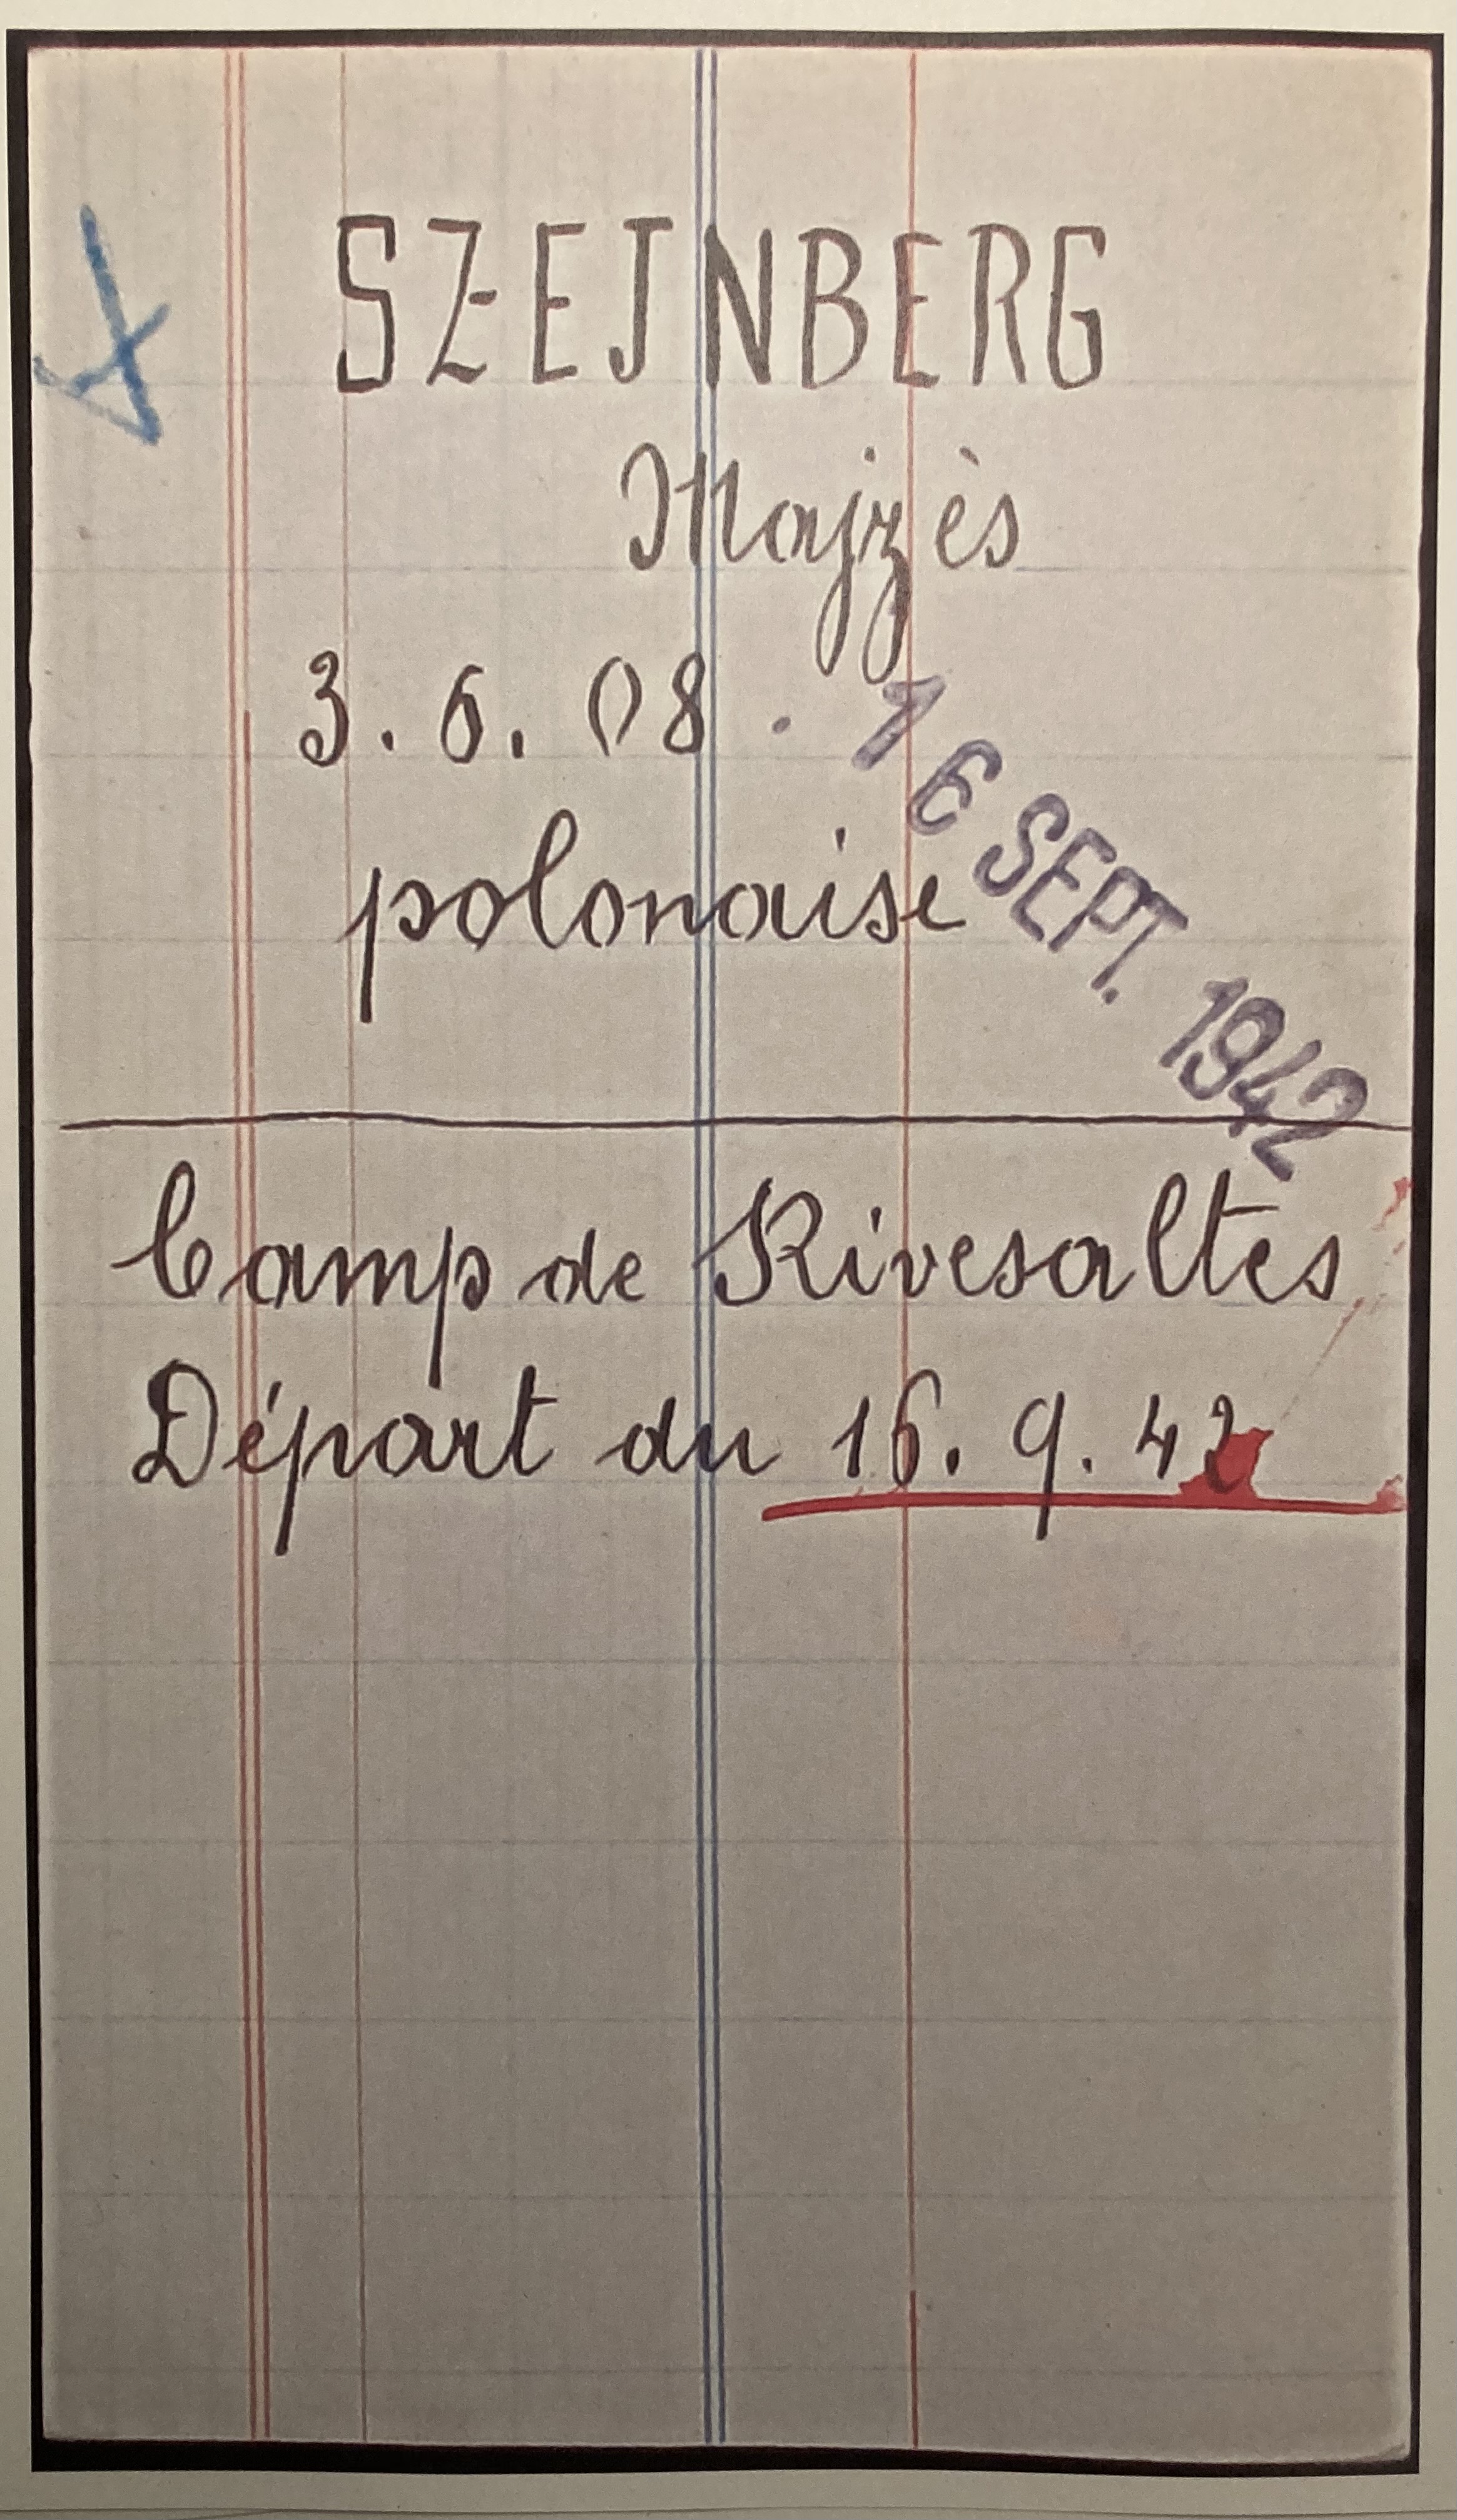 SZEJNBERG
Majzès
3. 6. 08.
16 SEPT. 1942
polonaise
Camp de Rivesaltes
Départ du 16. 9. 42